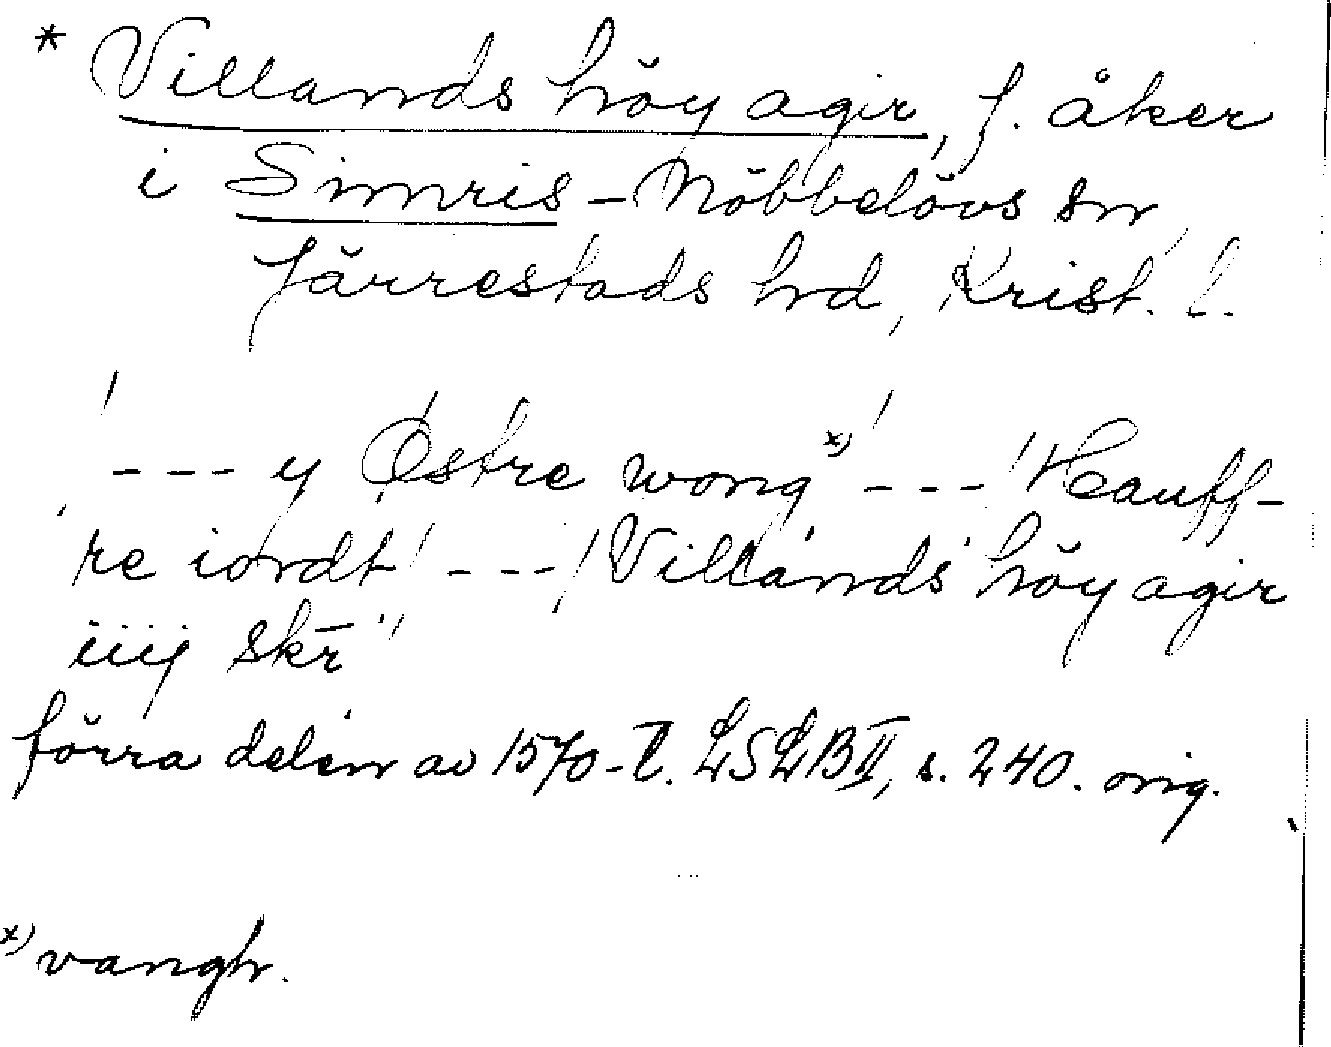 * Villands höy agir, f. åker
i Simris-Nöbbelövs sn,
Järrestads hd, Krist. l.
--- y Østre wong x) --- Hauff-
re iordt --- Villands höy agir
iiij skr̄"
förra delen av 1570-t. LSLB II, s. 240. orig.
x) vangh.